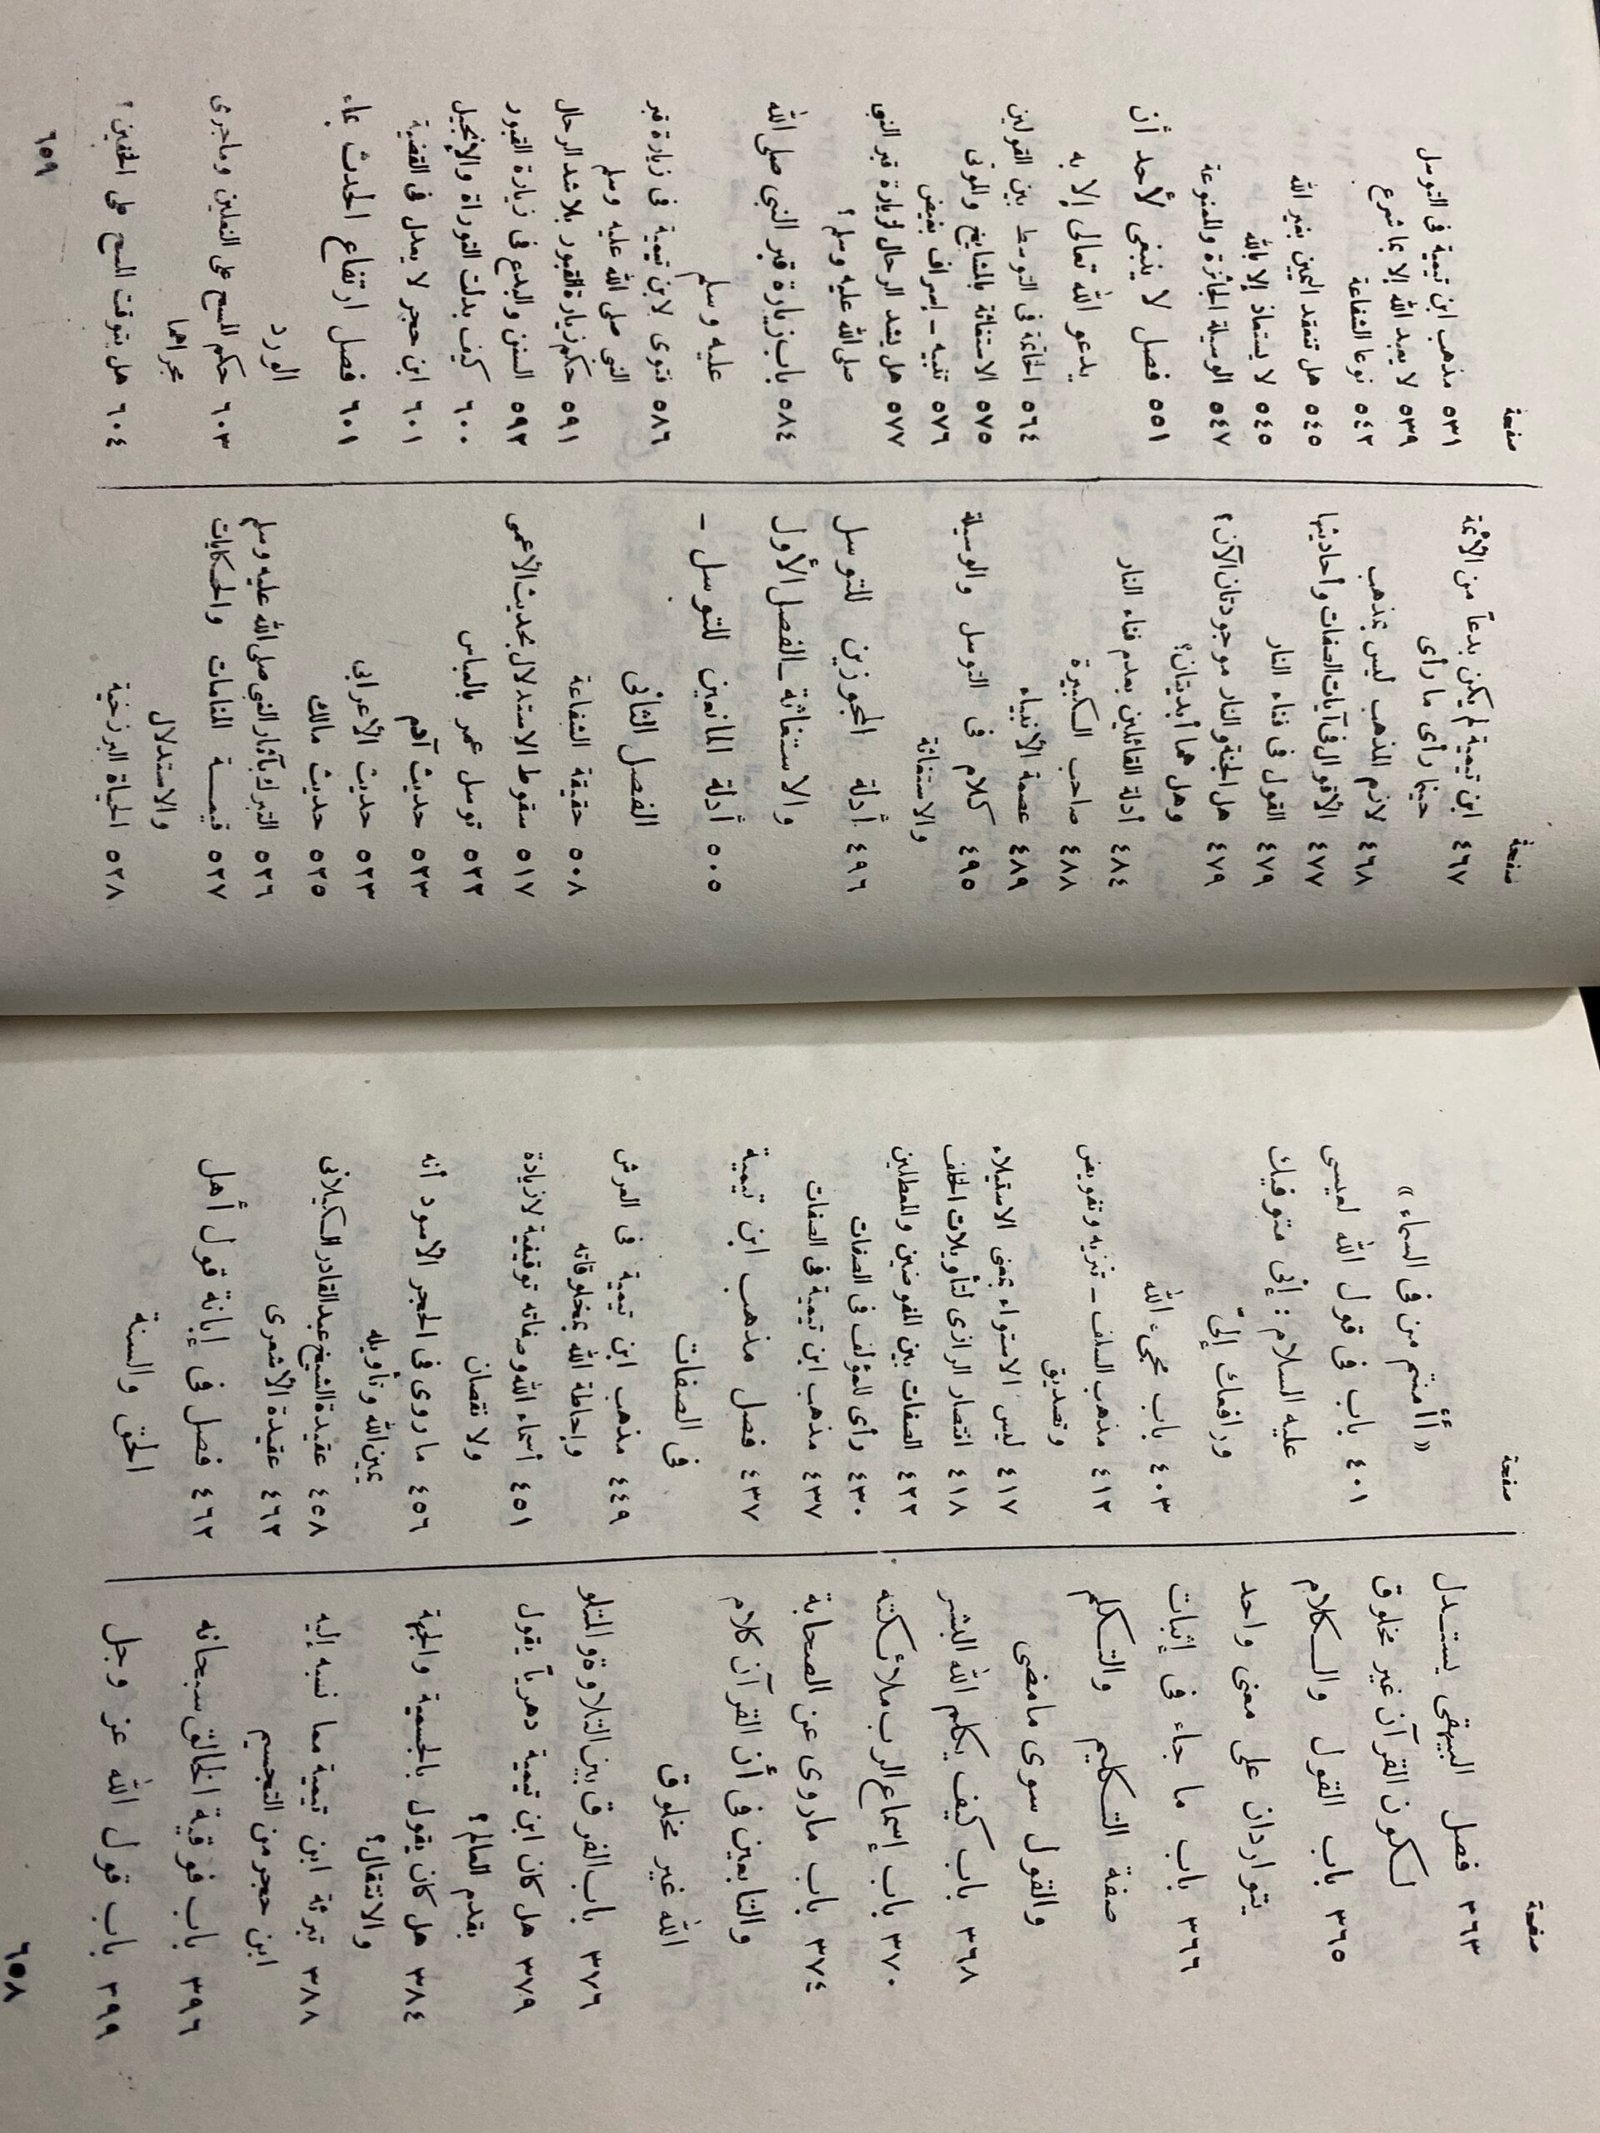 صفحة
٣٦٣ فصل البيهقى يستدل
لكون القرآن غير مخلوق
٣٦٥ باب القول والكلام
يتواردان على معنى واحد
٣٦٦ باب ما جاء فى إثبات
صفة التكليم والتكلم
والقول سوى مامضى
٣٦٨ باب كيف يكلم الله البشر
٣٧٠ باب إسماع الرب ملائكته
٣٧٤ باب ماروى عن الصحابة
والتابعين فى أن القرآن كلام
الله غير مخلوق
٣٧٦ باب الفرق بين التلاوة والمتلو
٣٧٩ هل كان ابن تيمية دهرياً يقول
بقدم العالم؟
٣٨٤ هل كان يقول بالجسمية والجهة
والانتقال؟
٣٨٨ تبرئة ابن تيمية مما نسبه إليه
ابن حجر من التجسيم
٣٩٦ باب فوقية الخالق سبحانه
٣٩٩ باب قول الله عز وجل
صفحة
«أأمنتم من فى السماء»
٤٠١ باب فى قول الله لعيسى
عليه السلام: إنى متوفيك
ورافعك إلىّ
٤٠٣ باب مجىء الله
٤١٢ مذهب السلف – تنزيه وتفويض
وتصديق
٤١٧ ليس الاستواء بمعنى الاستيلاء
٤١٨ انتصار الرازى لتأويلات الخلف
٤٢٢ الصفات بين المفوضين والمعطلين
٤٣٠ رأى للمؤلف فى الصفات
٤٣٧ مذهب ابن تيمية فى الصفات
٤٣٧ فصل مذهب ابن تيمية
فى الصفات
٤٤٩ مذهب ابن تيمية فى العرش
وإحاطة الله بمخلوقاته
٤٥١ أسماء الله وصفاته توقيفية لا زيادة
ولا نقصان
٤٥٦ ما روى فى الحجر الأسود أنه
يمين الله وتأويله
٤٥٨ عقيدة الشيخ عبد القادر الكيلانى
٤٦٢ عقيدة الأشعرى
٤٦٢ فصل فى إبانة قول أهل
الحق والسنة
٦٥٨
صفحة
٤٦٧ ابن تيمية لم يكن بدعاً من الأئمة
حينما رأى ما رأى
٤٦٨ لازم المذهب ليس بمذهب
٤٧٧ الأقوال فى آيات الصفات وأحاديثها
٤٧٩ القول فى فناء النار
٤٧٩ هل الجنة والنار موجودتان الآن؟
وهل هما أبديتان؟
٤٨٤ أدلة القائلين بعدم فناء النار
٤٨٨ صاحب الكبيرة
٤٨٩ عصمة الأنبياء
٤٩٥ كلام فى التوسل والوسيلة
والاستغاثة
٤٩٦ أدلة المجوزين للتوسل
والاستغاثة ـ الفصل الأول
٥٠٥ أدلة المانعين للتوسل –
الفصل الثانى
٥٠٨ حقيقة الشفاعة
٥١٧ سقوط الاستدلال بحديث الأعمى
٥٢٢ توسل عمر بالعباس
٥٢٣ حديث آدم
٥٢٣ حديث الأعرابى
٥٢٥ حديث مالك
٥٢٦ التبرك بآثار النبى صلى الله عليه وسلم
٥٢٧ قيمة المنامات والحكايات
والاستدلال
٥٢٨ الحياة البرزخية
صفحة
٥٣١ مذهب ابن تيمية فى التوسل
٥٣٩ لا يعبد الله إلا بما شرع
٥٤٢ نوعا الشفاعة
٥٤٥ هل تنعقد اليمين بغير الله
٥٤٥ لا يستعاذ إلا بالله
٥٤٧ الوسيلة الجائزة والممنوعة
٥٥١ فصل لا ينبغى لأحد أن
يدعو الله تعالى إلا به
٥٦٤ الخاتمة فى التوسط بين القولين
٥٧٥ الاستغاثة بالمشايخ والموتى
٥٧٦ تنبيه – إسراف بغيض
٥٧٧ هل يشد الرحال لزيارة قبر النبى
صلى الله عليه وسلم؟
٥٨٤ باب زيارة قبر النبى صلى الله
عليه وسلم
٥٨٦ فتوى لابن تيمية فى زيارة قبر
النبى صلى الله عليه وسلم
٥٩١ حكم زيارة القبور بلا شد الرحال
٥٩٢ السنن والبدع فى زيارة القبور
٦٠٠ كيف بدلت التوراة والإنجيل
٦٠١ ابن حجر لا يعدل فى القضية
٦٠١ فصل ارتفاع الحدث بماء
الورد
٦٠٣ حكم المسح على النعلين وماجرى
مجراهما
٦٠٤ هل يتوقت المسح على الخفين؟
٦٥٩